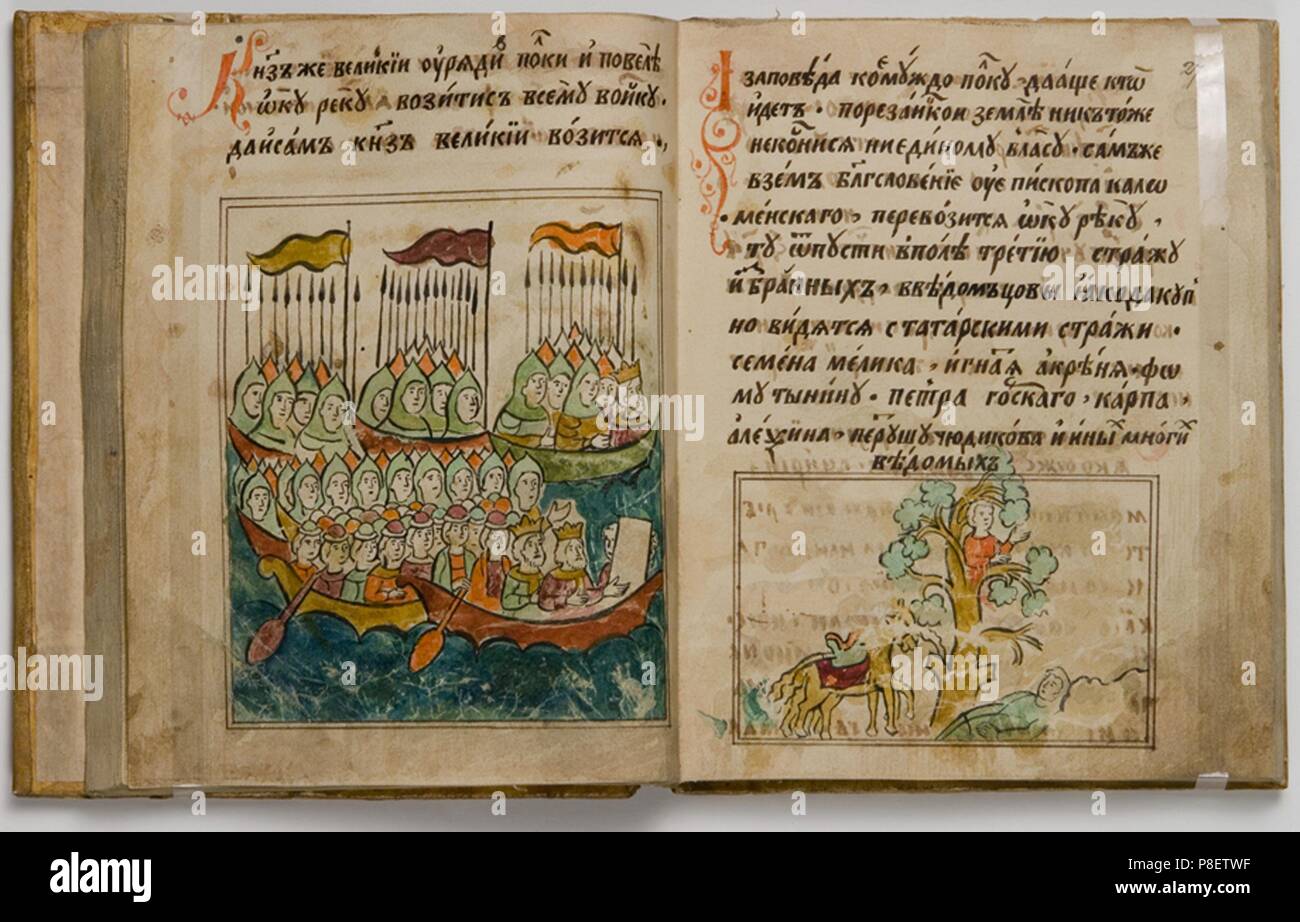 Кнѕъ же великїи ѹрѧди полки и повелѣ
ѡкꙋ рекꙋ возитисѧ всемꙋ войскꙋ.
да и самъ кнѕь великїи возитсѧ.,
І заповѣда коемꙋждо полкꙋ, да аще ктѡ
идетъ. по резанской землѣ никътоже
не коснисѧ ни единомꙋ власꙋ. самъ же
вземъ блгсловенїе ѹ епископа калѡ
менскаго, перевозитсѧ ѡкꙋ рѣкꙋ,
тꙋ ѿпꙋсти в полѣ третїю стражꙋ
избранныхъ, в вѣдомъцовъ
но видѧтсѧ с татарскими стражи.
семена мелика, игнаѧ а кренѧ. фѡ
мꙋ тынинꙋ. петра горскаго, карпа,
алеѯина, петрꙋшꙋ чюдикова и иныⷯ многиⷯ
вѣдомыхъ
alamy
a
alamy
Image ID: P8ETWF
www.alamy.com